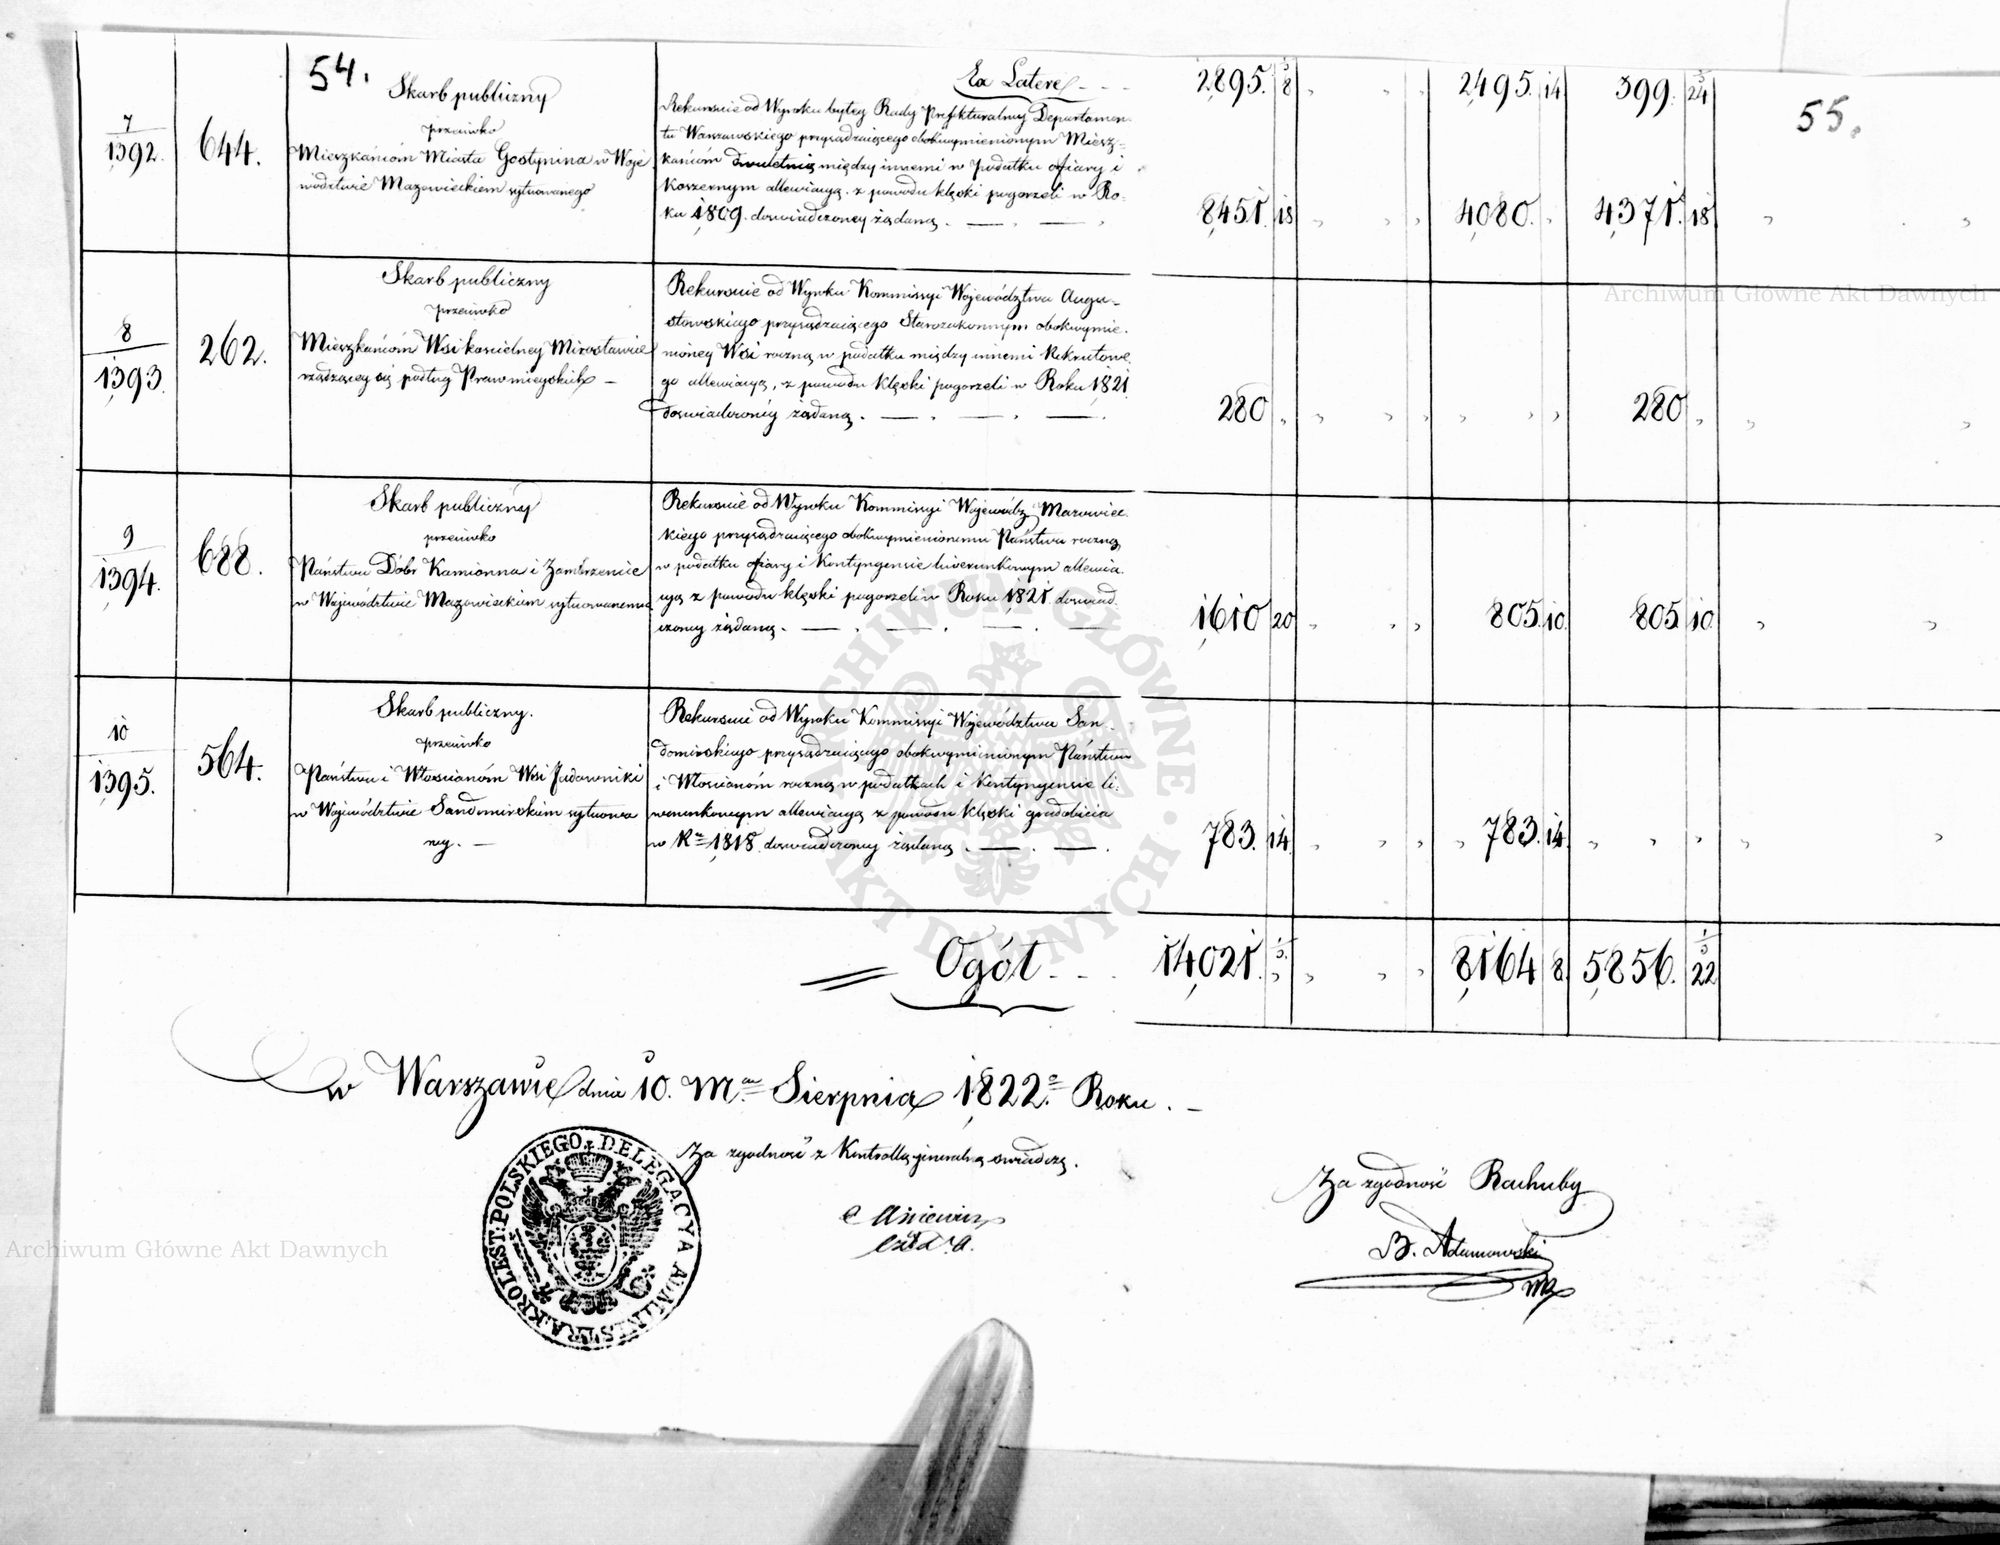 54.
55.
Ex Latere - - - 2895. 8 2495. 14 399. 24
7/1392. 644.
Skarb publiczny
przeciwko
Mieszkańcom Miasta Gostynina w Woje
wództwie Mazowieckiem sytuowanego
Rekursie od Wyroku byłey Rady Prefekturalney Departamen-
tu Warszawskiego przysądzaiącego obokwymienionym Miesz-
kańcom dwuletnią między innemi w podatku ofiary i
Koszernym allewiacyą, z powodu klęski pogorzeli w Ro-
ku 1809. doświadczoney żądaną.
8451 18 4080. 4371. 18
8/1393. 262.
Skarb publiczny
przeciwko
Mieszkańcom Wsi kościelney Mirosławie
rządzącey się podług Praw mieyskich —
Rekursie od Wyroku Kommissyi Województwa Augu-
stowskiego przysądzaiącego Starozakonnym obokwymie-
nioney Wsi roczną w podatku między innemi Rekrutowe-
go allewiacyą, z powodu klęski pogorzeli w Roku 1821
doświadczoney żądaną.
280 280
9/1394. 688.
Skarb publiczny
przeciwko
Państwu Dóbr Kamionna i Zambrzenice
w Województwie Mazowieckiem sytuowanemu
Rekursie od Wyroku Kommissyi Wojewódz. Mazowiec-
kiego przysądzaiącego obokwymienionemu Państwu roczną
w podatku ofiary i Kontyngensie liwerunkowym allewia-
cyą z powodu klęski pogorzeli w Roku 1821. doświad-
czoney żądaną.
1610 20 805. 10. 805 10.
10/1395. 564.
Skarb publiczny.
przeciwko
Państwu i Włościanom Wsi Jadowniki
w Województwie Sandomirskiem sytuowa
ney. —
Rekursie od Wyroku Kommissyi Województwa San-
domirskiego przysądzaiącego obokwymienionym Państwu
i Włościanom roczną w podatkach i Kontyngensie li-
werunkowym allewiacyą z powodu klęski gradobicia
w Ru 1818. doświadczoney żądaną.
783. 14. 783. 14.
Ogół - - - 14021. 8164 8. 5856. 22
w Warszawie dnia 10. Mca Sierpnia 1822.o Roku. —
Za zgodność z Kontrollą jeneralną świadczę.
Za zgodność Rachuby
B. Adamowski
mp
KROLEST: POLSKIEGO DELEGACYA ADMINISTRA:
ARCHIWUM GŁÓWNE AKT DAWNYCH
Archiwum Główne Akt Dawnych
Archiwum Główne Akt Dawnych